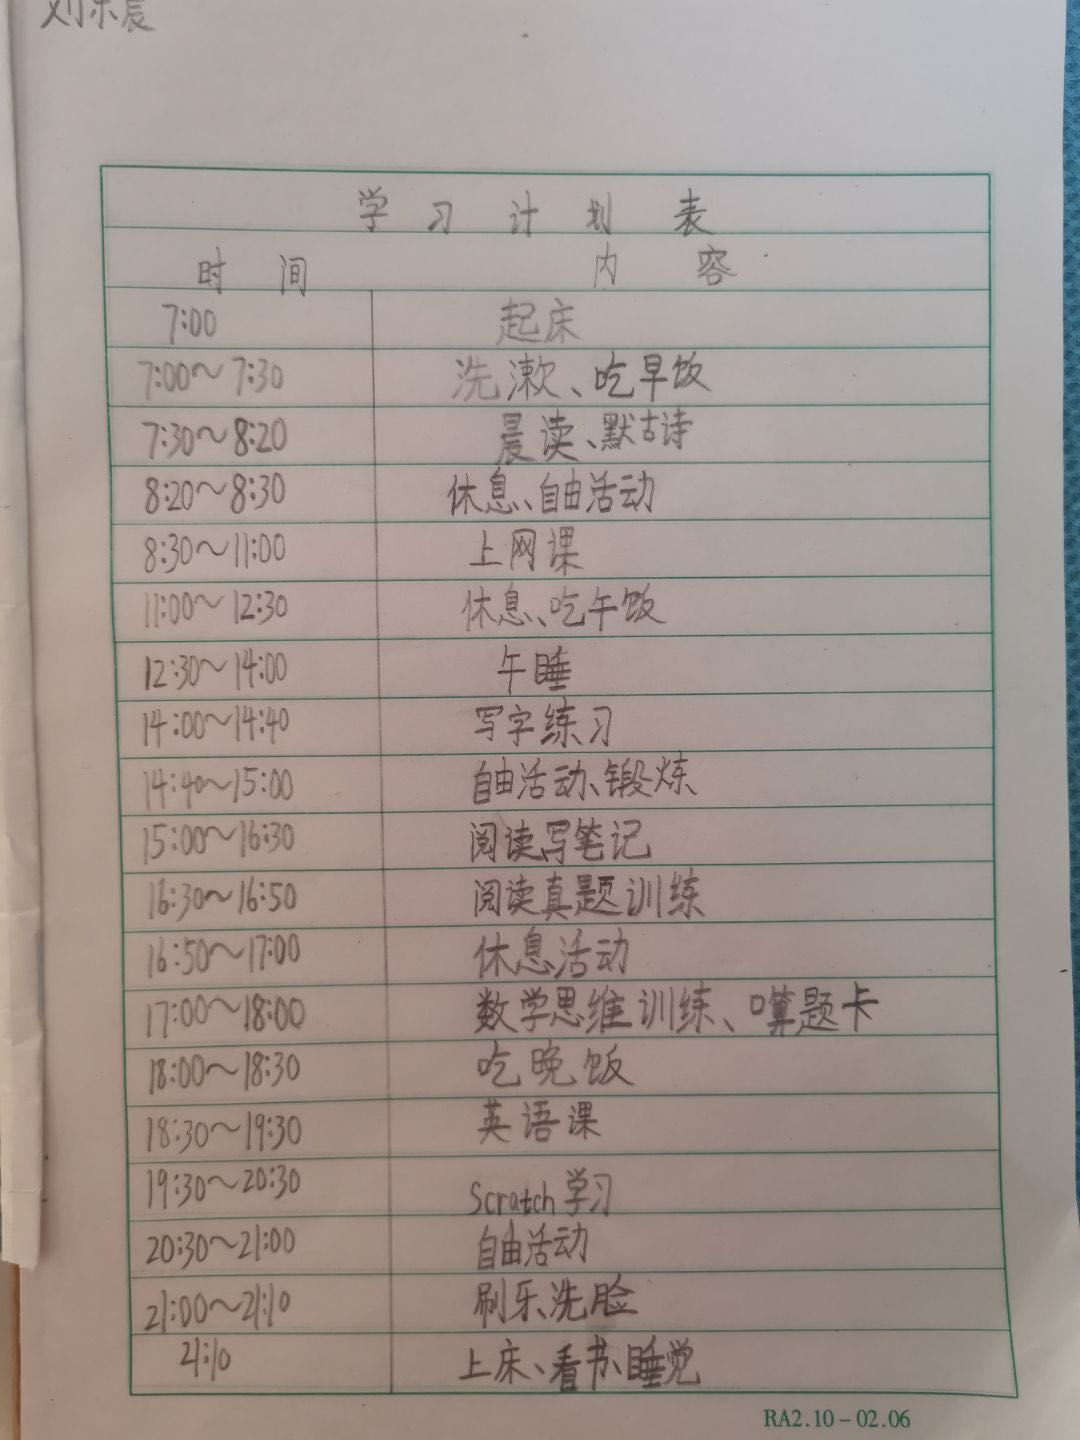 刘乐晨
学习计划表
时间 内容
7:00 起床
7:00~7:30 洗漱、吃早饭
7:30~8:20 晨读、默古诗
8:20~8:30 休息、自由活动
8:30~11:00 上网课
11:00~12:30 休息、吃午饭
12:30~14:00 午睡
14:00~14:40 写字练习
14:40~15:00 自由活动、锻炼
15:00~16:30 阅读写笔记
16:30~16:50 阅读真题训练
16:50~17:00 休息活动
17:00~18:00 数学思维训练、口算题卡
18:00~18:30 吃晚饭
18:30~19:30 英语课
19:30~20:30 Scratch学习
20:30~21:00 自由活动
21:00~21:10 刷牙、洗脸
21:10 上床、看书、睡觉
RA2.10-02.06